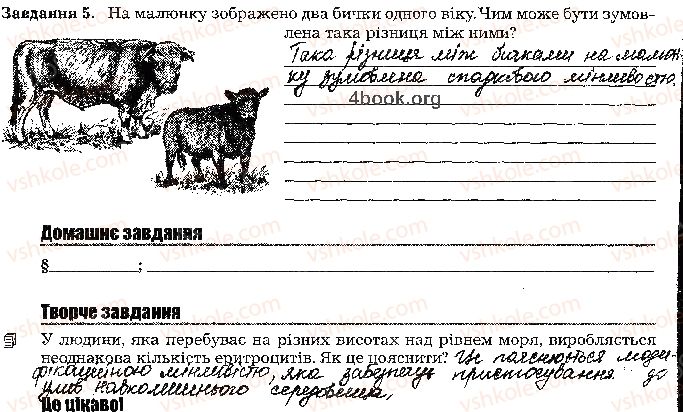 Завдання 5. На малюнку зображено два бички одного віку. Чим може бути зумов-
лена така різниця між ними?
Така різниця між бичками на малюн-
ку зумовлена спадковою мінливістю.
4book.org
Домашнє завдання
§ ; 
Творче завдання
У людини, яка перебуває на різних висотах над рівнем моря, виробляється
неоднакова кількість еритроцитів. Як це пояснити? Це пояснюється моди-
фікаційною мінливістю, яка забезпечує пристосування до
умов навколишнього середовища.
Це цікаво!